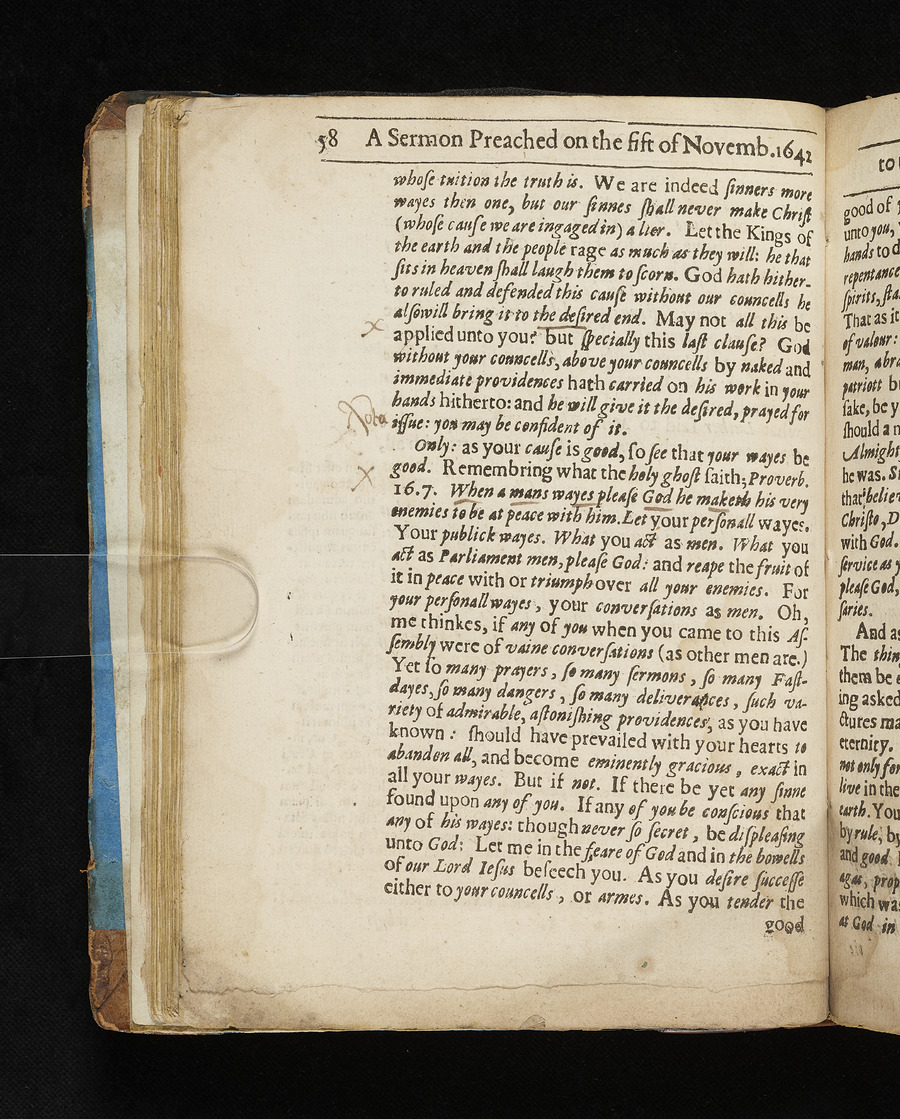 58 A Sermon Preached on the fift of Novemb. 1642
whoſe tuition the truth is. We are indeed ſinners more
wayes then one, but our ſinnes ſhall never make Chriſt
(whoſe cauſe we are ingaged in) a lier. Let the Kings of
the earth and the people rage as much as they will: he that
ſits in heaven ſhall laugh them to ſcorn. God hath hither-
to ruled and defended this cauſe without our councells he
alſo will bring it to the deſired end. May not all this be
x
applied unto you? but ſpecially this laſt clauſe? God
without your councells, above your councells by naked and
immediate providences hath carried on his work in your
hands hitherto: and he will give it the deſired, prayed for
Nota
iſſue: you may be confident of it.
Only: as your cauſe is good, ſo ſee that your wayes be
x
good. Remembring what the holy ghoſt ſaith; Proverb.
16.7. When a mans wayes pleaſe God he maketh his very
enemies to be at peace with him. Let your perſonall wayes.
Your publick wayes. What you act as men. What you
act as Parliament men, pleaſe God: and reape the fruit of
it in peace with or triumph over all your enemies. For
your perſonall wayes, your converſations as men. Oh,
me thinkes, if any of you when you came to this Aſ-
ſembly were of vaine converſations (as other men are.)
Yet ſo many prayers, ſo many ſermons, ſo many Faſt-
dayes, ſo many dangers, ſo many deliverances, ſuch va-
riety of admirable, aſtoniſhing providences, as you have
known: ſhould have prevailed with your hearts to
abandon all, and become eminently gracious, exact in
all your wayes. But if not. If there be yet any ſinne
found upon any of you. If any of you be conſcious that
any of his wayes: though never ſo ſecret, be diſpleaſing
unto God: Let me in the feare of God and in the bowells
of our Lord Ieſus beſeech you. As you deſire ſucceſſe
either to your councells, or armes. As you tender the
good
to
good of
unto you,
hands to d
repentance
ſpirits, ſta
That as it
of valour:
man, abra
patriott b
ſake, be y
ſhould a n
Almight
he was. S
that believ
Chriſto, D
with God.
ſervice as y
pleaſe God,
ſaries.
And as
The thin
them be e
ing asked
ctures ma
eternity.
not only for
live in the
earth. You
by rule, by
and good.
agas, prop
which was
at God in